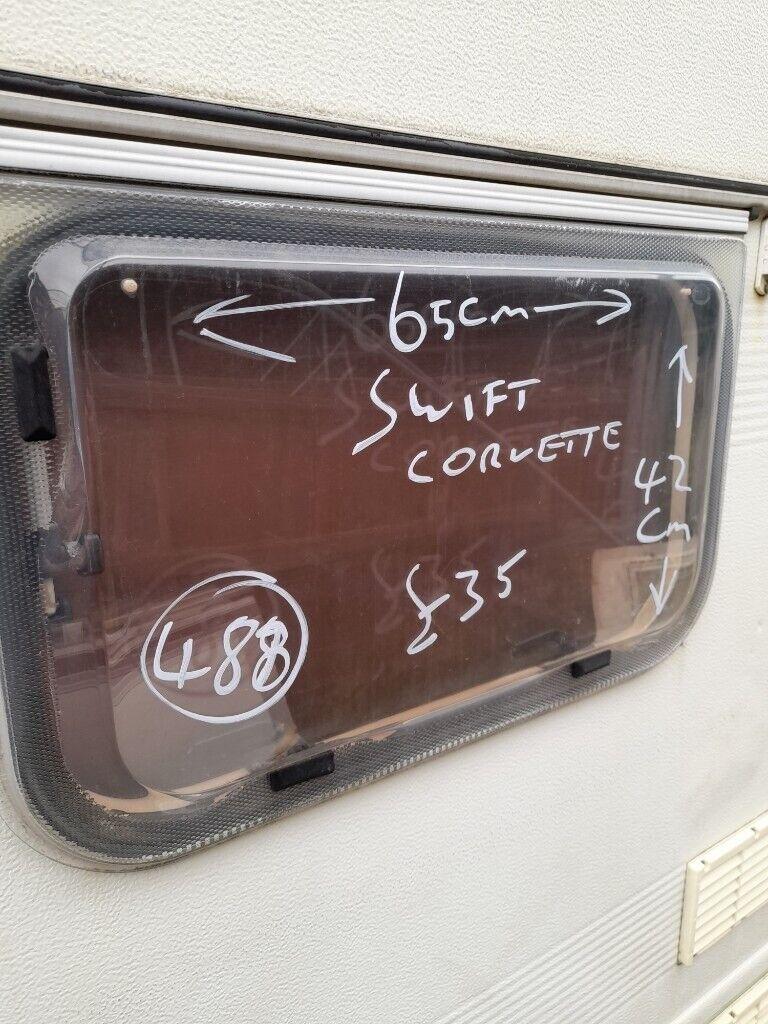 65cm
SWIFT
CORVETTE
42
cm
£35
488